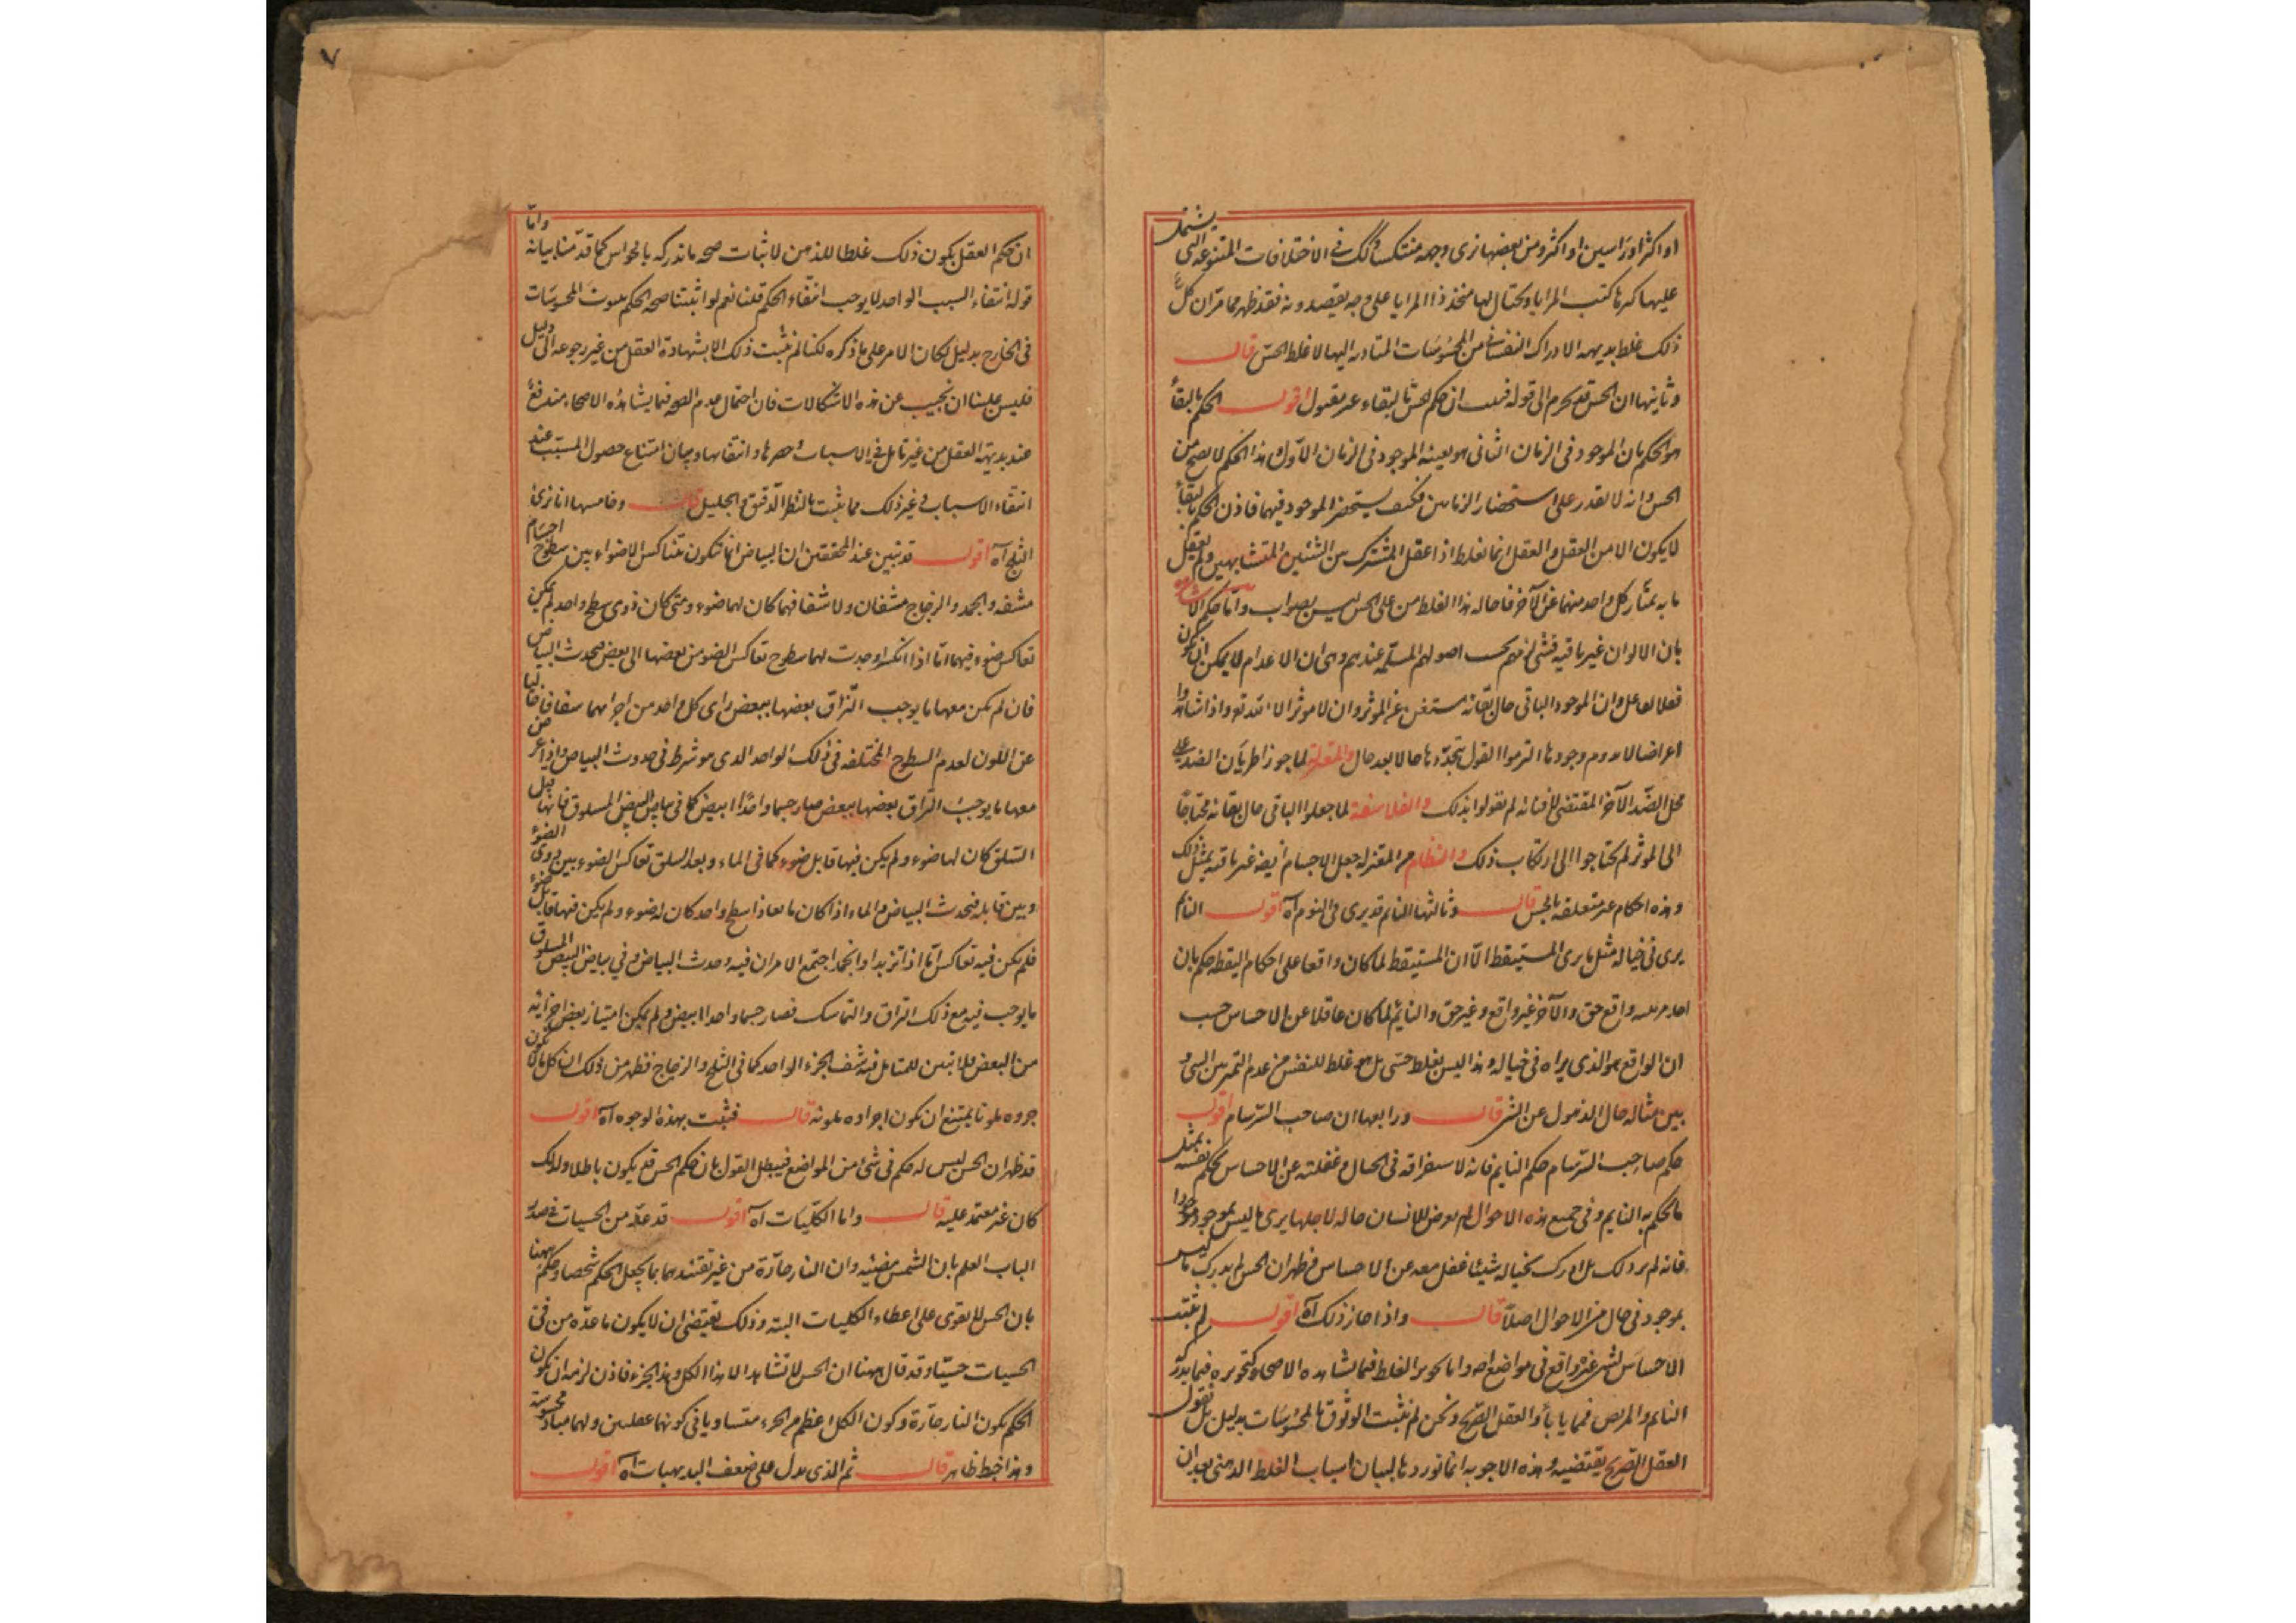 او اكثر او راسين او اكثر ومن بعضها نرى وجهه منتكسا كل ذلك فى الاختلافات المتنوعه التى يشتمل
عليها كتب المرايا ويحتال لها متخذ ذا المرايا على وجه يقصدونه فقد ظهر مما مر ان كل
ذلك غلط بديهه الادراك النفسانى من المحسوسات المتادية اليها لا غلط الحسّ قال
وثانيها ان الحس قد يجزم الى قوله فثبت ان حكم الحس بالبقاء غير مقبول اقول الحكم بالبقاء
هو الحكم بان الموجود فى الزمان الثانى هو بعينه الموجود فى الزمان الاول وهذا الحكم لا يصح من
الحس وانه لا يقدر على استحضار الزمانين فكيف يستحضر الموجود فيهما فاذن الحكم بالبقاء
لا يكون الا من العقل والعقل انما يغلط اذا عقل المشترك بين الشيئين المتشابهين ولم يعقل
ما به يمتاز كل واحد منهما عن الآخر فاحاله هذا الغلط من على الحس ليس بصواب وامّا حكم الاشاعره
بان الالوان غير باقيه فشئ لزمهم بحسب اصولهم المسلّمه عندهم وهى ان الاعدام لا يمكن ان يكون
فعلا لفاعل وان الموجود الباقى حال بقائه مستغن عن الموثر وان لا موثر الا الله تع واذا شاهدوا
اعراضا لا يدوم وجودها التزموا القول بتجدّدها حالا بعد حال والمعتزلة لما جوزوا طريان الضد على
محل الضّد الآخر المقتضى لافنائه لم يقولوا بذلك والفلاسفة لما جعلوا الباقى حال بقائه محتاجًا
الى الموثر لم يحتاجوا الى ارتكاب ذلك والنظام من المعتزله جعل الاجسام ايضا غير باقيه بمثل ذلك
وهذه احكام غير متعلقه بالحس قال وثالثها النائم قد يرى فى النوم آه اقول النائم
يرى فى خياله مثل ما يرى المستيقظ الّا ان المستيقظ لما كان واقفا على احكام اليقظه حكم بان
احد مرئييه واقع حق والآخر غير واقع وغير حق والنائم لما كان غافلا عن الاحساس حسب
ان الواقع هو الذى يراه فى خياله وهذا ليس بغلط حسّى بل هو غلط للنفس من عدم التميز بين الشئ و
بين مثاله حال الذهول عن الشئ قال ورابعها ان صاحب السّرسام اقول
حكم صاحب السّرسام حكم النايم فانه لاستغراقه فى الخيال وغفلته عن الاحساس يحكم نفسه بمثل
ما يحكم به النايم وفى جميع هذه الاحوال لم يعرض للانسان حاله لاجلها يرى ما ليس بموجود موجودا
فانه لم ير ذلك بل ادرك بخياله شيئا غفل معه عن الاحساس فظهران الحس لم يدرك ما ليس
بموجود فى حال من الاحوال اصلًا قال واذا جاز ذلك آه اقول لم يثبت
الاحساس لشئ غير واقع فى مواضع اصلا واما تجويز الغلط فيما يشاهده الاصحاء كتجويزه فيما يدركه
النايم والمريض فمما ياباه العقل الصّريح ونحن لم نثبت الوثوق بالمحسوسات بدليل بل نقول
العقل الصّريح يقتضيه وهذه الاجوبه انما نوردها لبيان اسباب الغلط الذهنى بعد ان
ان حكم العقل بكون ذلك غلطا للذهن لا لاثبات صحه ما ندركه بالحواس كما قدّمنا بيانه وامّا
قوله انتفاء السبب الواحد لا يوجب انتفاء الحكم قلنا نعم لو اثبتنا صحه الحكم بثبوت المحسوسات
فى الخارج بدليل لكان الامر على ما ذكره لكنا لم نثبت ذلك الا بشهادة العقل من غير رجوعه الى دليل
فليس علينا ان نجيب عن هذه الاشكالات فان احتمال عدم الصحه فيما يشاهده الاصحاء مندفع
عند بديهة العقل من غير تامل فى الاسباب وحصرها وانتفائها وبيان امتناع حصول المسبّب عند
انتفاء الاسباب وغير ذلك مما يثبت بالنظر الدّقيق والجليل قال وخامسها انا نرى
الثلج آه اقول قد تبين عند المحققين ان البياض انما يتكون بتعاكس الاضواء بين سطوح اجسام
مشفه والجمد والزجاج مشفان ولاشفافهما كان لهما ضوء ومتى كان ذوى سطح واحد لم يكن
تعاكس ضوء فيهما امّا اذا انكسرا وحدثت لهما سطوح تعاكس الضوء من بعضها الى بعض فحدث البياض
فان لم يكن معها ما يوجب التزاق بعضها ببعض راى كل واحد من اجزائهما شفافا خاليا
عن اللون لعدم السطوح المختلفه فى ذلك الواحد الذى هو شرط فى حدوث البياض واذا عرض
معها ما يوجب التزاق بعضها ببعض صار جسما واحدًا ابيض كما فى بياض البيض المسلوق فانها قبل
السّلق كان لها ضوء ولم يكن فيها قابل ضوء كما فى الماء وبعد السلق تعاكس الضوء بين ذوى الضوء
وبين قابله فيحدث البياض والماء اذا كان مايعا ذا سطح واحد كان له ضوء ولم يكن فيها قابل ضوء
فلم يكن فيه تعاكس امّا اذا تزبد او انجمد اجتمع الامران فيه وحدث البياض وفى بياض البيض المسلوق
ما يوجب فيه مع ذلك التزاق والتماسك فصار جسما واحدا ابيض ولم يمكن امتياز بعض اجزائه
من البعض فلا يتبين للمتامل فيه شف الجزء الواحد كما فى الثلج والزجاج فظهر من ذلك ان كل ما لا يكون
جزوه ملونا يمتنع ان يكون اجزاوه ملونه قال فثبت بهذه الوجوه آه اقول
قد ظهر ان الحس ليس له حكم فى شئ من المواضع فيبطل القول بان حكم الحس قد يكون باطلا ولذلك
كان غير معتمد عليه قال واما الكلّيات آه اقول قد عدّ من الحسيات فى صدر
الباب العلم بان الشمس مضيئه وان النار حارّة من غير تقييدهما بما يجعل الحكم شخصيا وحكم ههنا
بان الحس لا يقوى على اعطاء الكليات البته وذلك يقتضى ان لا يكون ما عدّه من
الحسيات حسّيا وقد قال ههنا ان الحس لا تشاهد الا هذا الكل وهذا الجزء فاذن لزمه ان يكون
الحكم بكون النار حارّة وكون الكل اعظم من الجزء متساويا فى كونهما عقليين ولهما مباد محسوسة
وهذا خبط ظاهر قال ثم الذى يدل على ضعف البديهيات آه اقول
٧